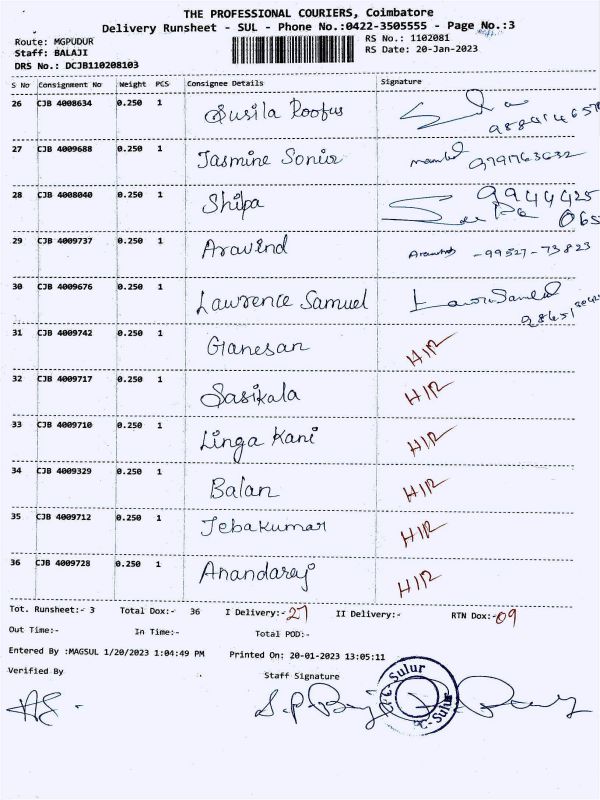 THE PROFESSIONAL COURIERS, Coimbatore
Delivery Runsheet - SUL - Phone No.:0422-3505555 - Page No.:3
Route: MGPUDUR
RS No.: 1102081
Staff: BALAJI
RS Date: 20-Jan-2023
DRS No.: DCJB110208103
S No Consignment No Weight PCS Consignee Details Signature
26 CJB 4008634 0.250 1 Susila Roofus
27 CJB 4009688 0.250 1 Jasmine Sonia 9791763632
28 CJB 4008040 0.250 1 Shilpa 9944425
29 CJB 4009737 0.250 1 Aravind -99527-73823
30 CJB 4009676 0.250 1 Lawrence Samuel
31 CJB 4009742 0.250 1 Ganesan HIR
32 CJB 4009717 0.250 1 Sasikala HIR
33 CJB 4009710 0.250 1 Linga Kani HIR
34 CJB 4009329 0.250 1 Balan HIR
35 CJB 4009712 0.250 1 Jebakumar HIR
36 CJB 4009728 0.250 1 Anandaraj HIR
Tot. Runsheet:- 3 Total Dox:- 36 I Delivery:- 27 II Delivery:- RTN Dox:- 09
Out Time:- In Time:- Total POD:-
Entered By :MAGSUL 1/20/2023 1:04:49 PM Printed On: 20-01-2023 13:05:11
Verified By Staff Signature
Sulur